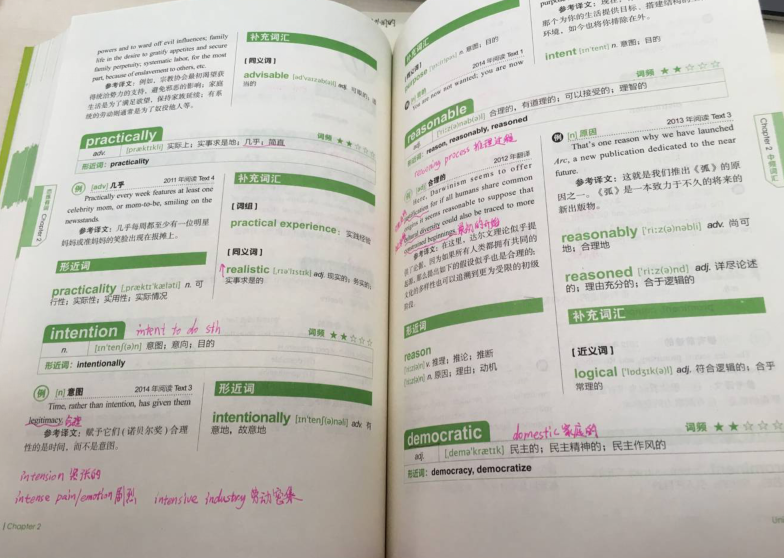 powers and to ward off evil influences; family
life in the desire to gratify appetites and secure
family perpetuity; systematic labor, for the most
part, because of enslavement to others, etc.
参考译文：例如，宗教协会最初渴望获
得统治势力的支持、避免邪恶的影响；家庭
生活是为了满足欲望、保持家族延续；有系
统的劳动则通常是为了奴役他人等。
补充词汇
[同义词]
advisable adj. 可取的，适
当的
practically
词频 ★★☆☆☆
adv. [ˈpræktɪkli] 实际上；实事求是地；几乎；简直
形近词：practicality
例 [adv] 几乎
2011年阅读 Text 4
Practically every week features at least one
celebrity mom, or mom-to-be, smiling on the
newsstands.
参考译文：几乎每周都至少有一位明星
妈妈或准妈妈的笑脸出现在报摊上。
形近词
practicality [ˌpræktɪˈkæləti] n. 可
行性；实际性；实用性；实际情况
补充词汇
[词组]
practical experience：实践经验
[同义词]
realistic [ˌriːəˈlɪstɪk] adj. 现实的；务实的；
实事求是的
Chapter 2
intention
intent to do sth
词频 ★★☆☆☆
n. [ɪnˈtenʃ(ə)n] 意图；意向；目的
形近词：intentionally
例 [n] 意图
2014年阅读 Text 3
Time, rather than intention, has given them
legitimacy. 合理
参考译文：赋予它们（诺贝尔奖）合理
性的是时间，而不是意图。
形近词
intentionally [ɪnˈtenʃ(ə)nəli] adv. 有
意地，故意地
intension 紧张的
intense pain/emotion 剧烈 intensive industry 劳动密集
Chapter 2
补充词汇
purpose n. 意图；目的
2014年阅读 Text 1
You are now not wanted; you are now
参考译文：
那个为你的生活提供目标、搭建结构的
环境，如今也将你排除在外。
intent [ɪnˈtent] n. 意图；目的
reasonable
词频 ★★☆☆☆
adj. [ˈriːz(ə)nəb(ə)l] 合理的，有道理的；可以接受的；理智的
形近词：reason, reasonably, reasoned
reasoning process 推理过程
例 [adj] 合理的
2012年翻译
Here, Darwinism seems to offer
justification for if all humans share common
origins it seems reasonable to suppose that
cultural diversity could also be traced to more
constrained beginnings. 最初的开始
参考译文：在这里，达尔文理论似乎提
供了论据，因为如果所有人类都拥有共同的
起源，那么提出如下的假设似乎也是合理的：
文化的多样性也可以追溯到更为受限的初级
阶段。
形近词
reason
[ˈriːz(ə)n] v. 推理；推论；推断
[ˈriːz(ə)n] n. 原因；理由；动机
例 [n] 原因
2013年阅读 Text 3
That's one reason why we have launched
Arc, a new publication dedicated to the near
future.
参考译文：这就是我们推出《弧》的原
因之一。《弧》是一本致力于不久的将来的
新出版物。
reasonably [ˈriːz(ə)nəbli] adv. 尚可
地；合理地
reasoned [ˈriːz(ə)nd] adj. 详尽论述
的；理由充分的；合于逻辑的
补充词汇
[近义词]
logical [ˈlɒdʒɪk(ə)l] adj. 符合逻辑的；合乎
常理的
Chapter 2 中频词汇
democratic
domestic 家庭的
词频 ★★☆☆☆
adj. [ˌdeməˈkrætɪk] 民主的；民主精神的；民主作风的
形近词：democracy, democratize